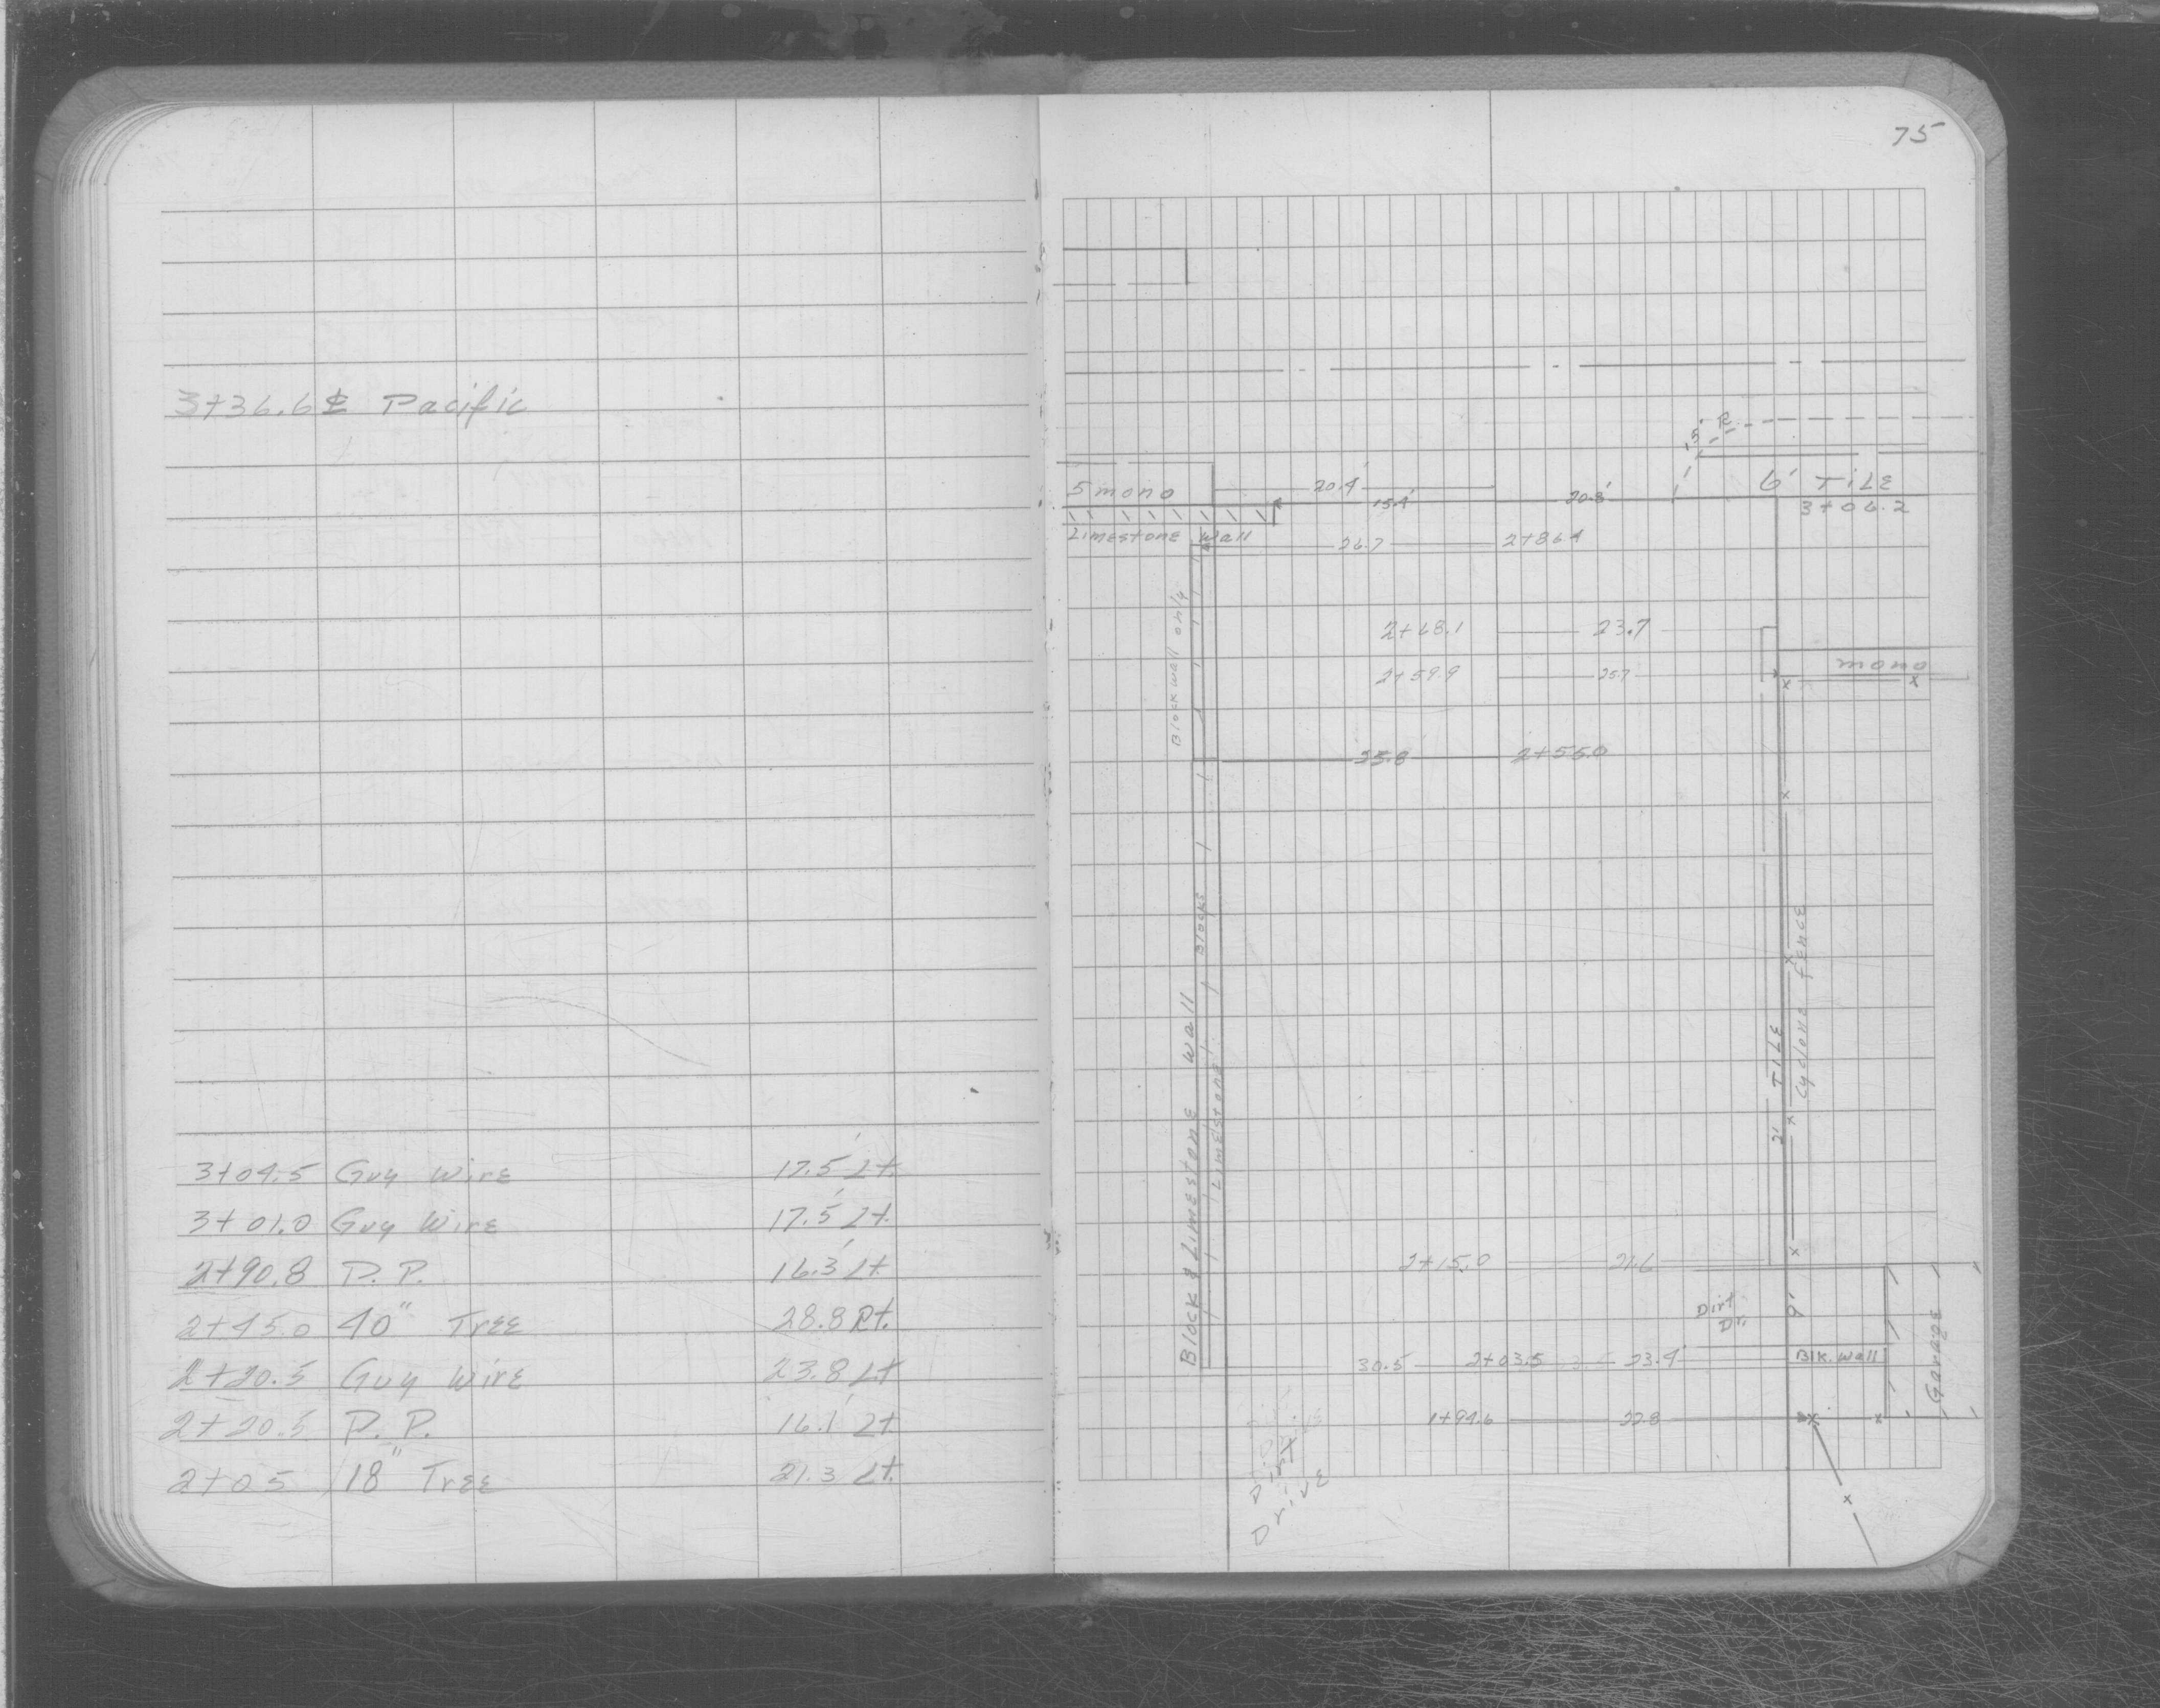 3+36.6 ℄ Pacific
3+04.5 Guy Wire 17.5' Lt.
3+01.0 Guy Wire 17.5' Lt.
2+90.8 P.P. 16.3' Lt.
2+45.0 40" Tree 28.8 Rt.
2+20.5 Guy Wire 23.8 Lt
2+20.5 P.P. 16.1' Lt
2+05 18" Tree 21.3 Lt.
75
5' R.
6' TILE
3+06.2
5 mono
20.4'
15.4'
20.8'
Limestone Wall
26.7
2+86.4
Block wall only
2+68.1
23.7
mono
2+59.9
25.7
2+56.0
Blocks
Limestone
Block & Limestone Wall
2' TILE
Cyclone fence
2+15.0
21.6
Dirt
Dr.
9'
Garage
30.5
2+03.5
23.4'
Blk. Wall
1+94.6
22.8
Dirt
Drive